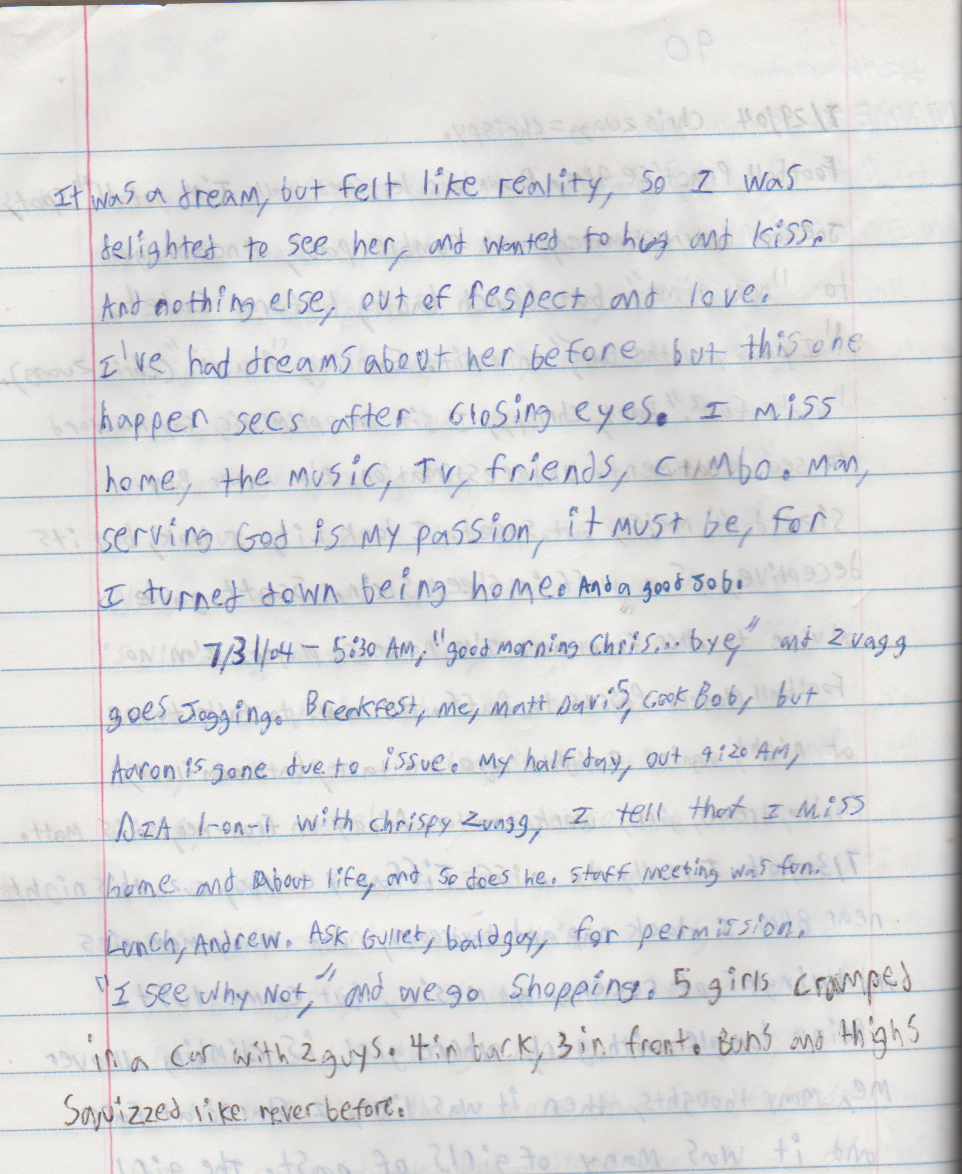 It was a dream, but felt like reality, so I was
delighted to see her, and wanted to hug and kiss.
And nothing else, out of respect and love.
I've had dreams about her before but this one
happen secs after closing eyes. I miss
home, the music, TV, friends, Cumbo. Man,
serving God is my passion, it must be, for
I turned down being home. And a good Job.
7/31/04 - 5:30 AM, "good morning Chris... bye," and Zuagg
goes Jogging. Breakfest, me, Matt Davis, Cook Bob, but
Aaron is gone due to issue. My half day, out 9:20 AM,
DIA 1-on-1 with chrispy Zuagg, I tell that I miss
home and about life, and so does he. Staff meeting was fun.
Lunch, Andrew. Ask Gullet, bald guy, for permission.
"I see why not," and we go shopping. 5 girls cramped
in a car with 2 guys. 4 in back, 3 in front. Buns and thighs
Squizzed like never before.